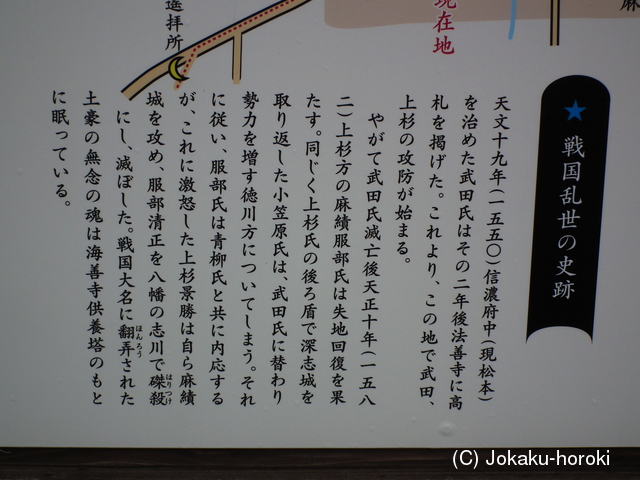 遥拝所
現在地
麻
★戦国乱世の史跡
天文十九年(一五五〇)信濃府中(現松本)
を治めた武田氏はその二年後法善寺に高
札を掲げた。これより、この地で武田、
上杉の攻防が始まる。
やがて武田氏滅亡後天正十年(一五八
二)上杉方の麻績服部氏は失地回復を果
たす。同じく上杉氏の後ろ盾で深志城を
取り返した小笠原氏は、武田氏に替わり
勢力を増す徳川方についてしまう。それ
に従い、服部氏は青柳氏と共に内応する
が、これに激怒した上杉景勝は自ら麻績
城を攻め、服部清正を八幡の志川で磔殺
はりつけ
にし、滅ぼした。戦国大名に翻弄された
ほんろう
土豪の無念の魂は海善寺供養塔のもと
に眠っている。
(C) Jokaku-horoki